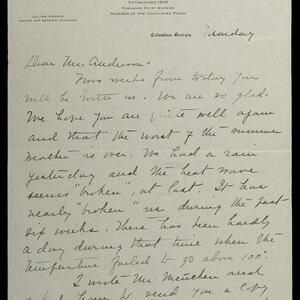 ESTABLISHED 1828
PUBLISHED EVERY MORNING
MEMBER OF THE ASSOCIATED PRESS
JULIAN HARRIS
EDITOR AND GENERAL MANAGER
Columbus, Georgia
Sunday
Dear Mr. Anderson-
Two weeks from today you
will be with us. We are so glad.
We hope you are quite well again
and that the worst of the summer
weather is over. We had a rain
yesterday and the heat wave
seems "broken", at last. It has
nearly "broken" us during the past
six weeks. There has been hardly
a day during that time when the
temperature failed to go above 100°.
I wrote Mr. Mencken and
him to send you a copy